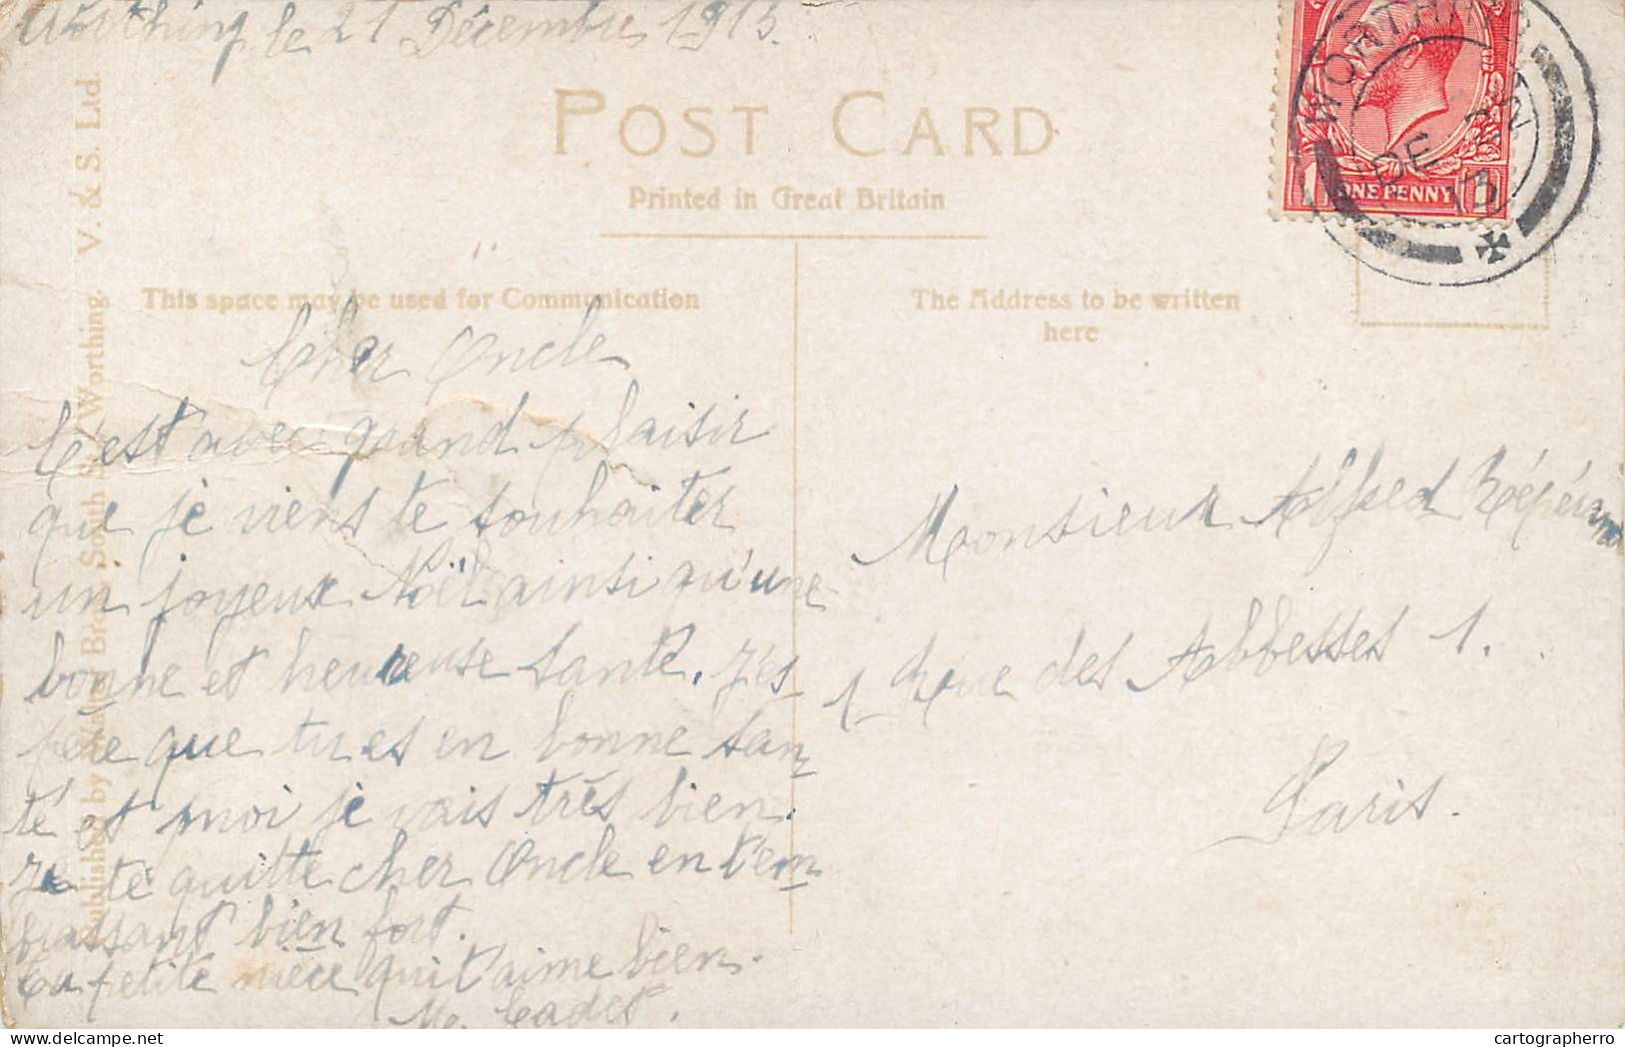 Worthing le 21 Décembre 1913.
POST CARD
Printed in Great Britain
This space may be used for Communication
The Address to be written
here
Published by Walter Bros. South St. Worthing. V. & S. Ltd.
WORTHING
DE
13
ONE PENNY
Cher Oncle
C'est avec grand plaisir
que je viens te souhaiter
un joyeux Noël ainsi qu'une
bonne et heureuse santé. J'es
père que tu es en bonne san
té et moi je vais très bien.
Je te quitte cher Oncle en t'em
brassant bien fort.
Ta petite nièce qui t'aime bien.
M. Cadet.
Monsieur Alfred
1 Rue des Abbesses 1.
Paris.
cartographerro